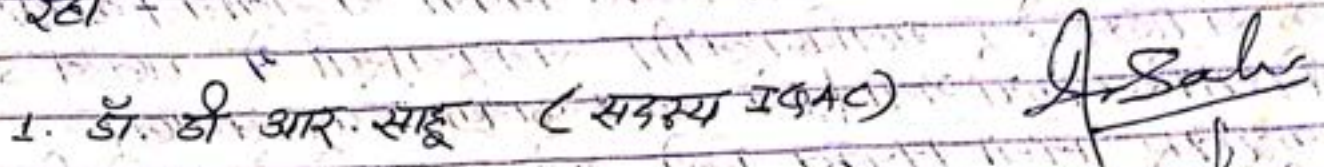 रहा -
1. डॉ. डी. आर. साहू ( सदस्य IQAC) Sahu